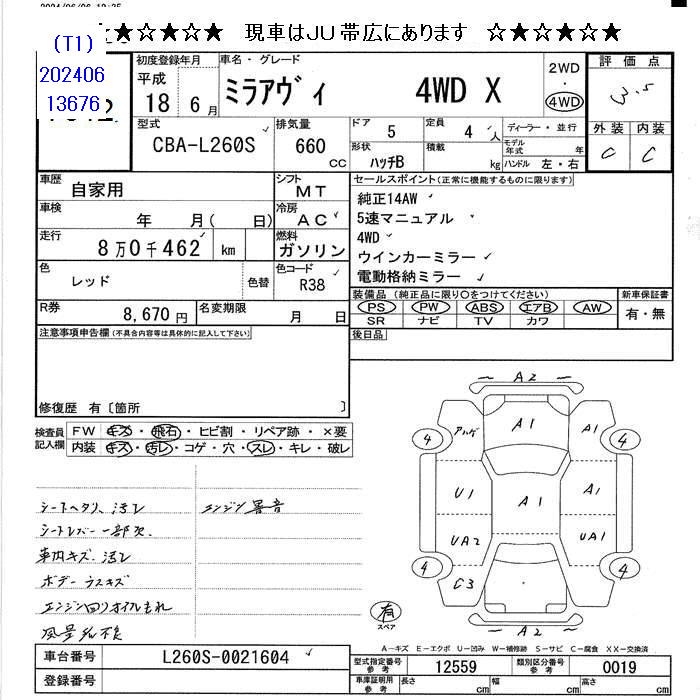 ★☆★☆★☆ 現車はJU帯広にあります ☆★☆★☆★
(T1)
202406
13676
初度登録年月
平成
18 6月
車名・グレード
ミラアヴィ 4WD X
2WD
・
4WD
評価点
3.5
外装 内装
C C
型式
CBA-L260S
排気量
660 CC
ドア 5
形状 ハッチB
定員 4 人
積載 kg
ディーラー・並行
モデル年式 年
ハンドル 左・右
車歴 自家用
シフト MT
車検 年 月( 日)
冷房 AC
走行 8万0千462 km
燃料 ガソリン
色 レッド 色替
色コード R38
R券 8,670円
名変期限 月 日
セールスポイント(正常に機能するものに限ります)
純正14AW
5速マニュアル
4WD
ウインカーミラー
電動格納ミラー
装備品(純正品に限り○をつけてください)
PS PW ABS エアB AW
SR ナビ TV カワ
新車保証書
有・無
後日品
注意事項申告欄(不具合内容等は具体的に記入して下さい)
修復歴 有〔箇所 〕
検査員記入欄
FW キズ・飛石・ヒビ割・リペア跡・×要
内装 キズ・汚レ・コゲ・穴・スレ・キレ・破レ
シートヘタリ、汚レ
エンジン異音
シートレバー一部欠
車内キズ、汚レ
ボデーうスキズ
エンジン回りオイルもれ
A2
アハゲ A1 A1
4 4
U1 A1 A1
UA2 UA1
4 4
C3
A2
有
スペア
A-キズ E-エクボ U-凹み W-補修跡 S-サビ C-腐食 XX-交換済
車台番号 L260S-0021604
登録番号
型式指定番号 参考 12559
類別区分番号 参考 0019
車庫証明用 参考 長さ cm 幅 cm 高さ cm